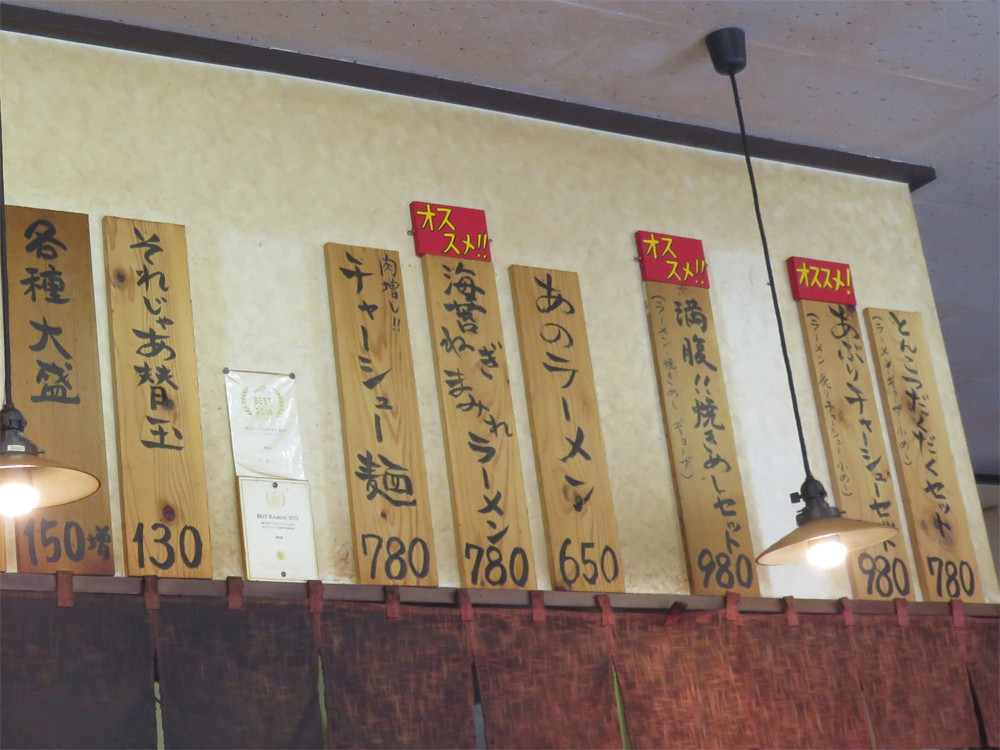 各種大盛
150増
それじゃあ替玉
130
BEST
2014
BEST RAMEN 2012
肉増し!!
チャーシュー麺
780
オス
スメ!!
海苔ねぎまみれラーメン
780
あのラーメン
650
オス
スメ!!
満腹!!焼きめしセット
(ラーメン 焼きめし ギョーザ)
980
オススメ!
あぶりチャーシューセット
980
とんこつだくだくセット
780